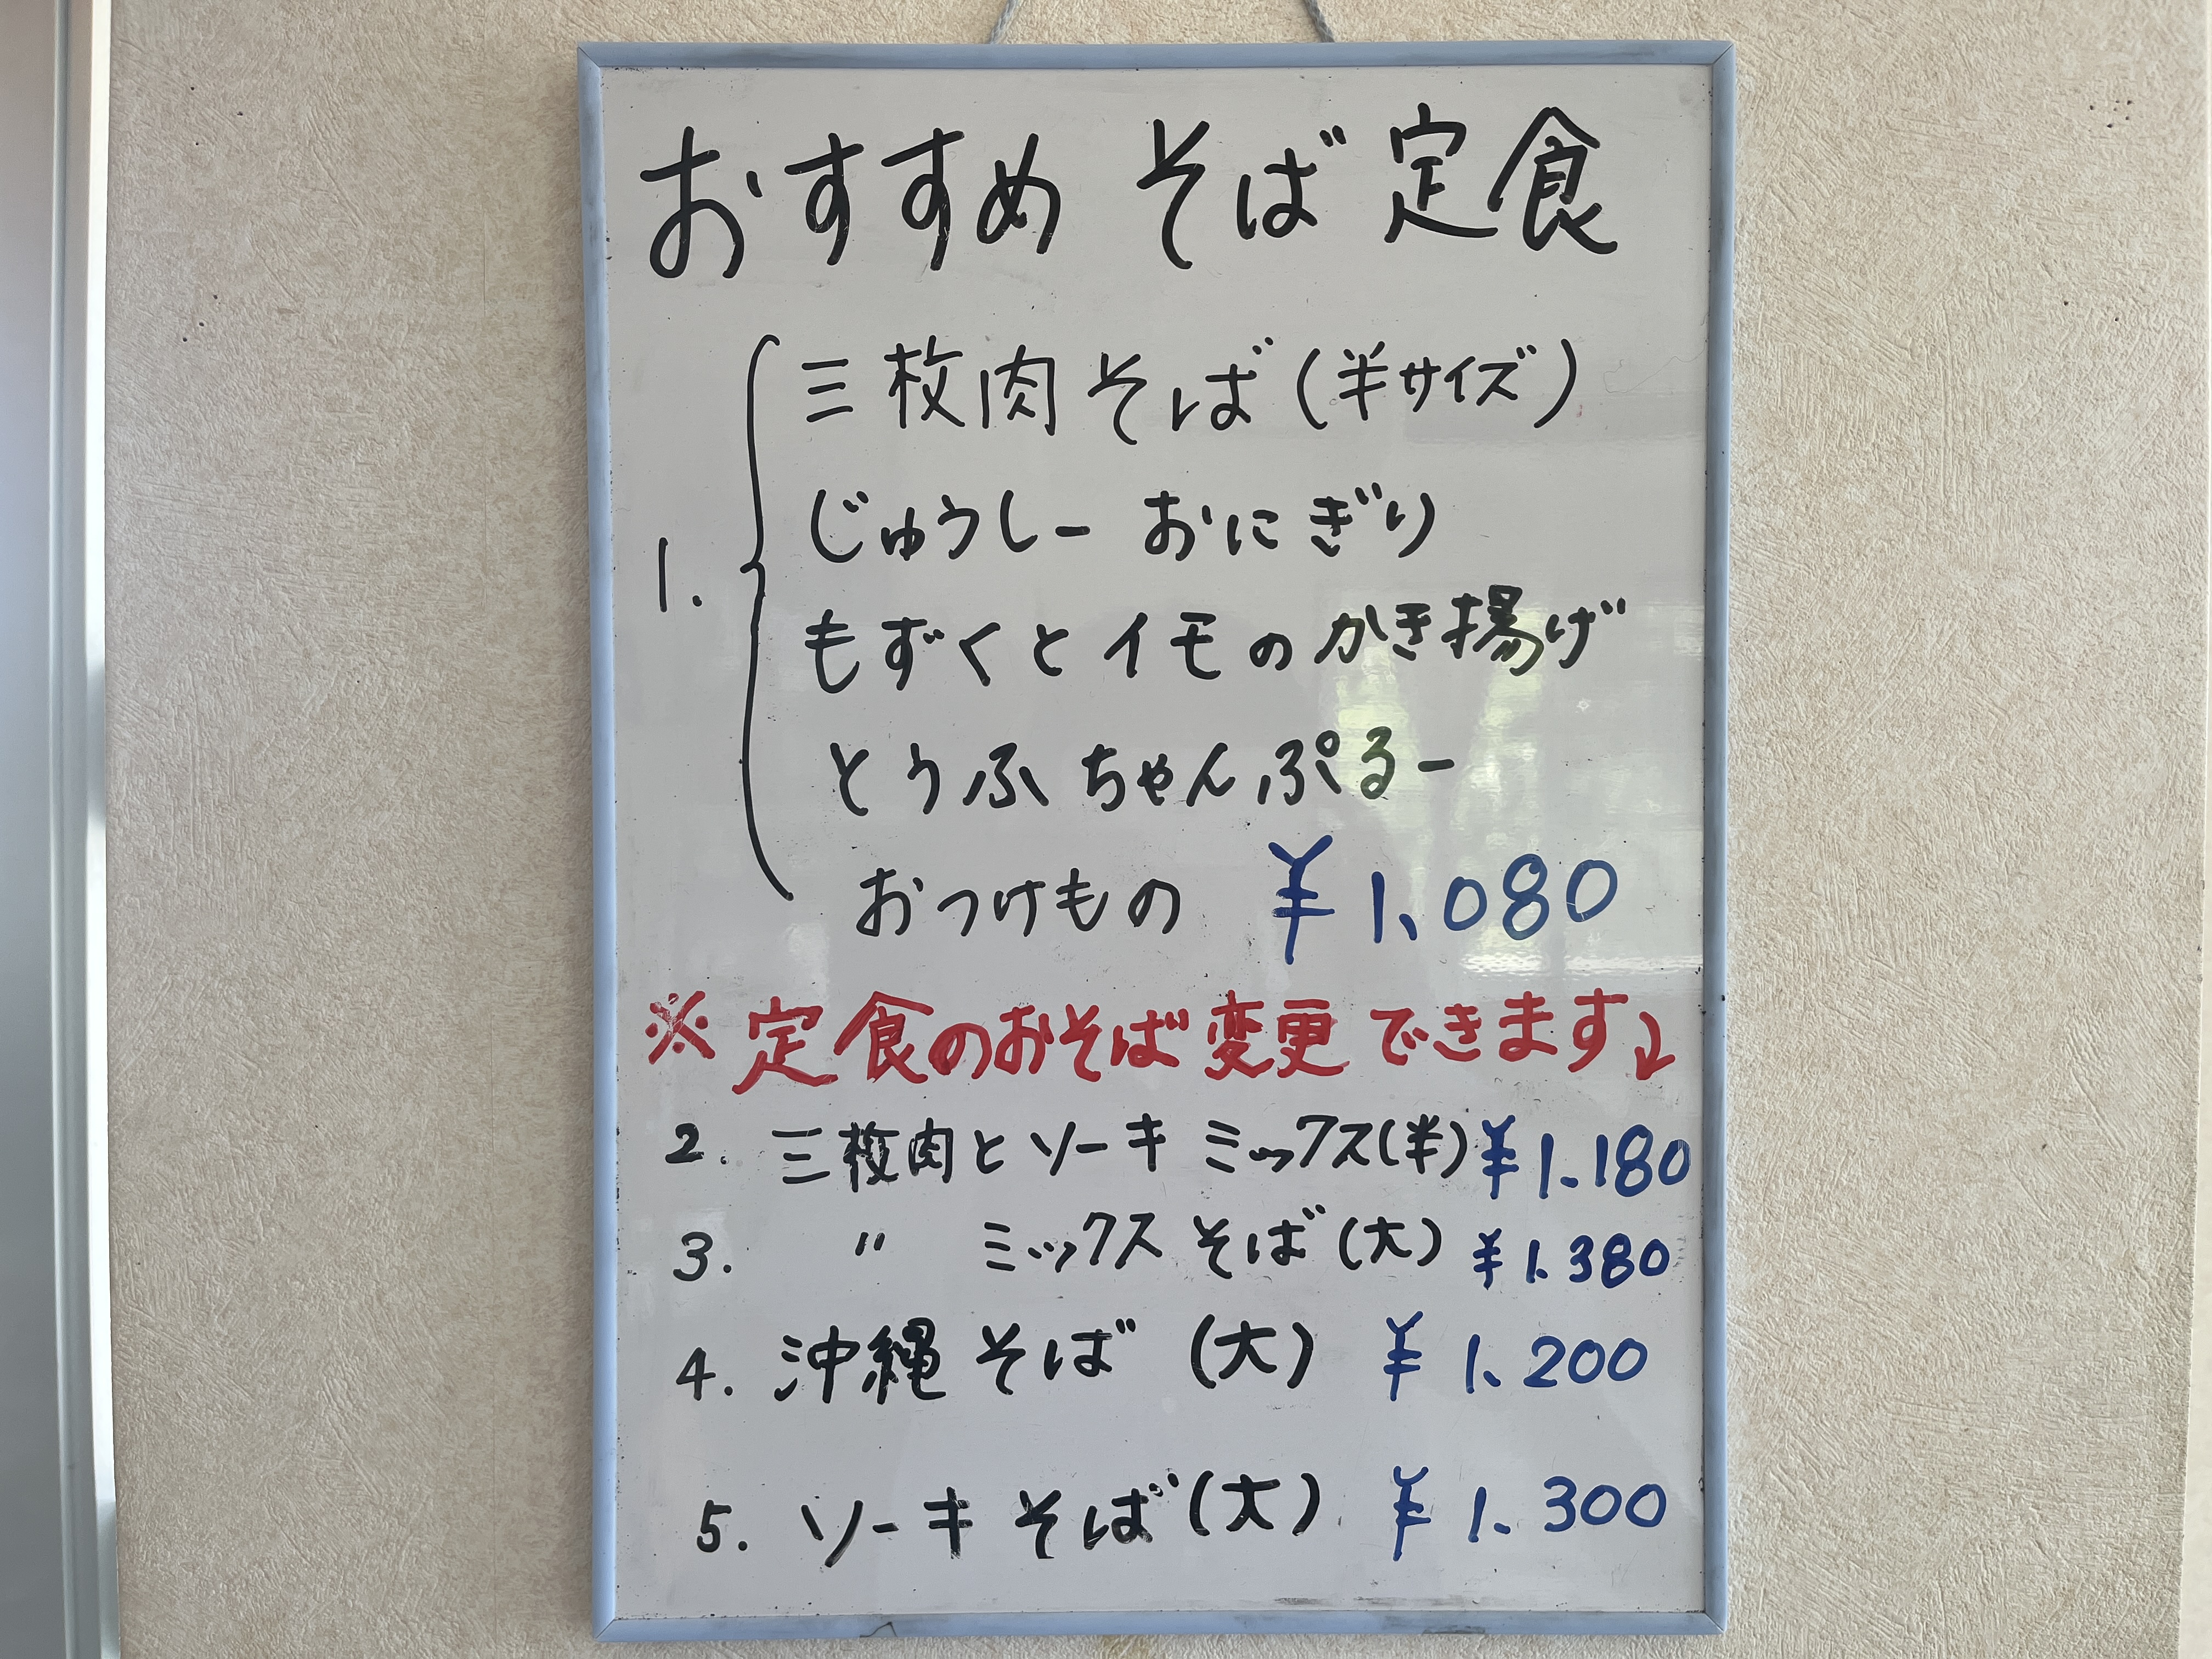 おすすめ そば 定食
三枚肉 そば (半サイズ)
じゅうしー おにぎり
1. もずくと イモ の かき揚げ
とうふ ちゃんぷるー
おつけもの ￥1,080
※ 定食のおそば 変更 できます↓
2. 三枚肉と ソーキ ミックス(半) ￥1.180
3. 〃 ミックス そば (大) ￥1.380
4. 沖縄 そば (大) ￥1.200
5. ソーキ そば (大) ￥1.300